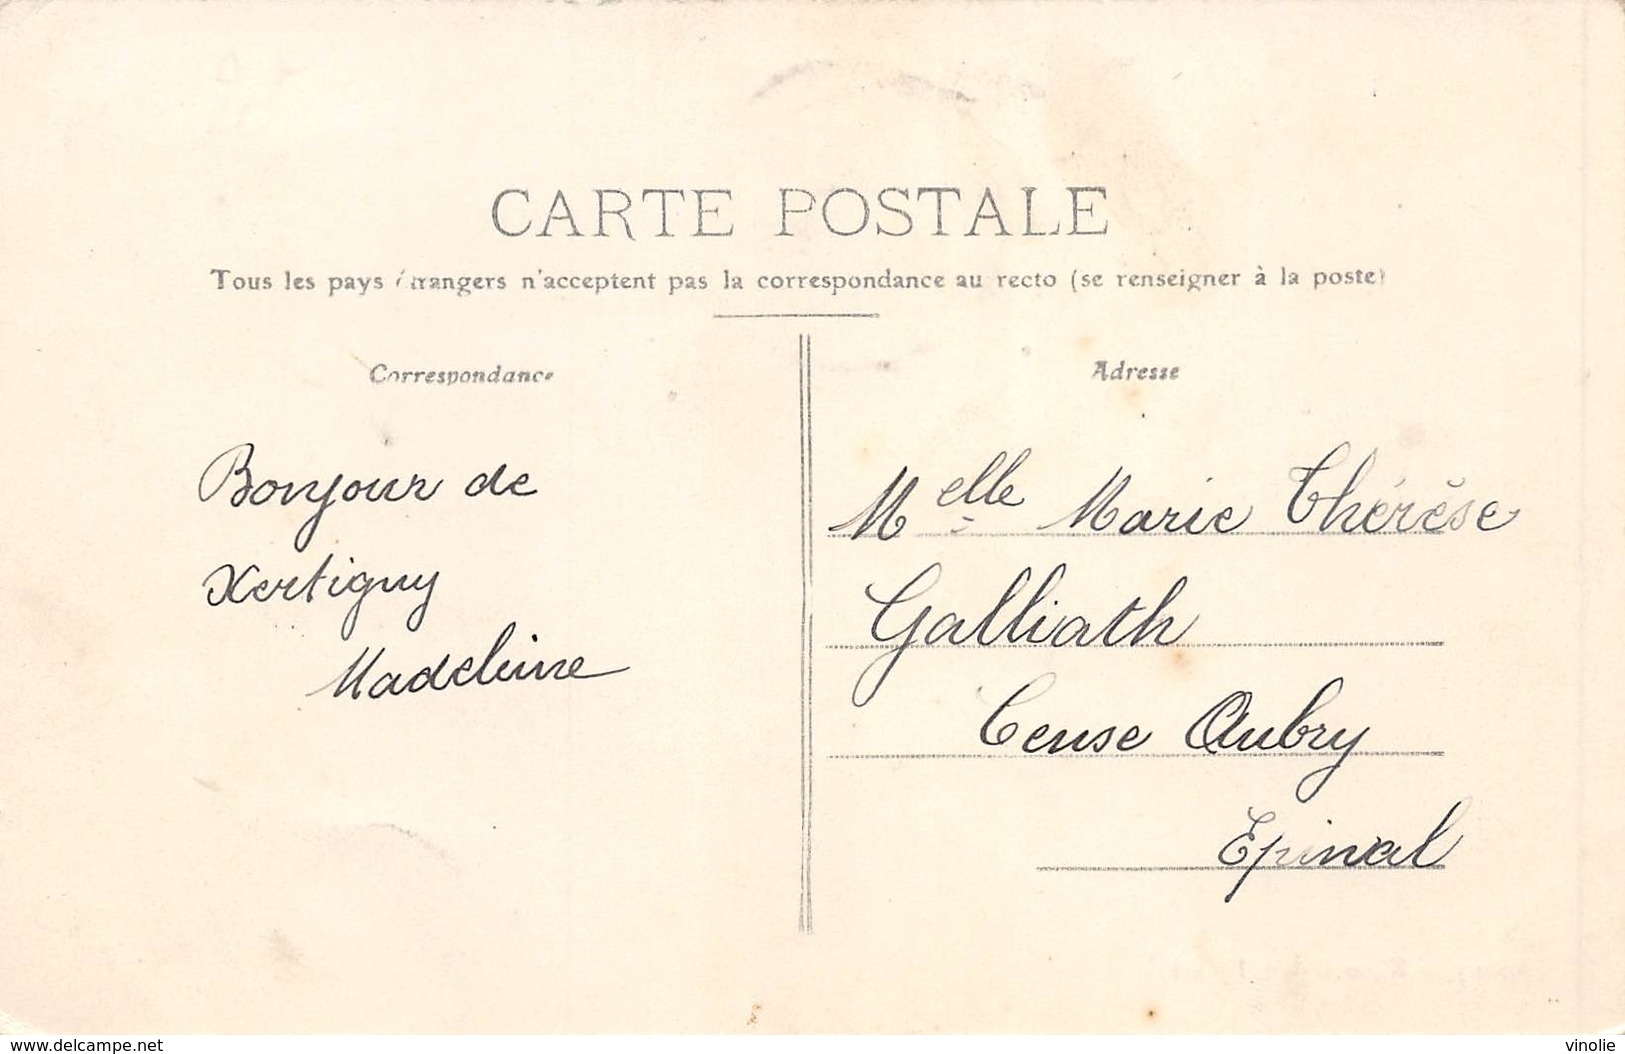 CARTE POSTALE
Tous les pays étrangers n'acceptent pas la correspondance au recto (se renseigner à la poste)
Correspondance
Bonjour de
Xertigny
Madeleine
Adresse
Melle Marie Thérèse
Galliath
Cense Aubry
Epinal
www.delcampe.net
vinolie